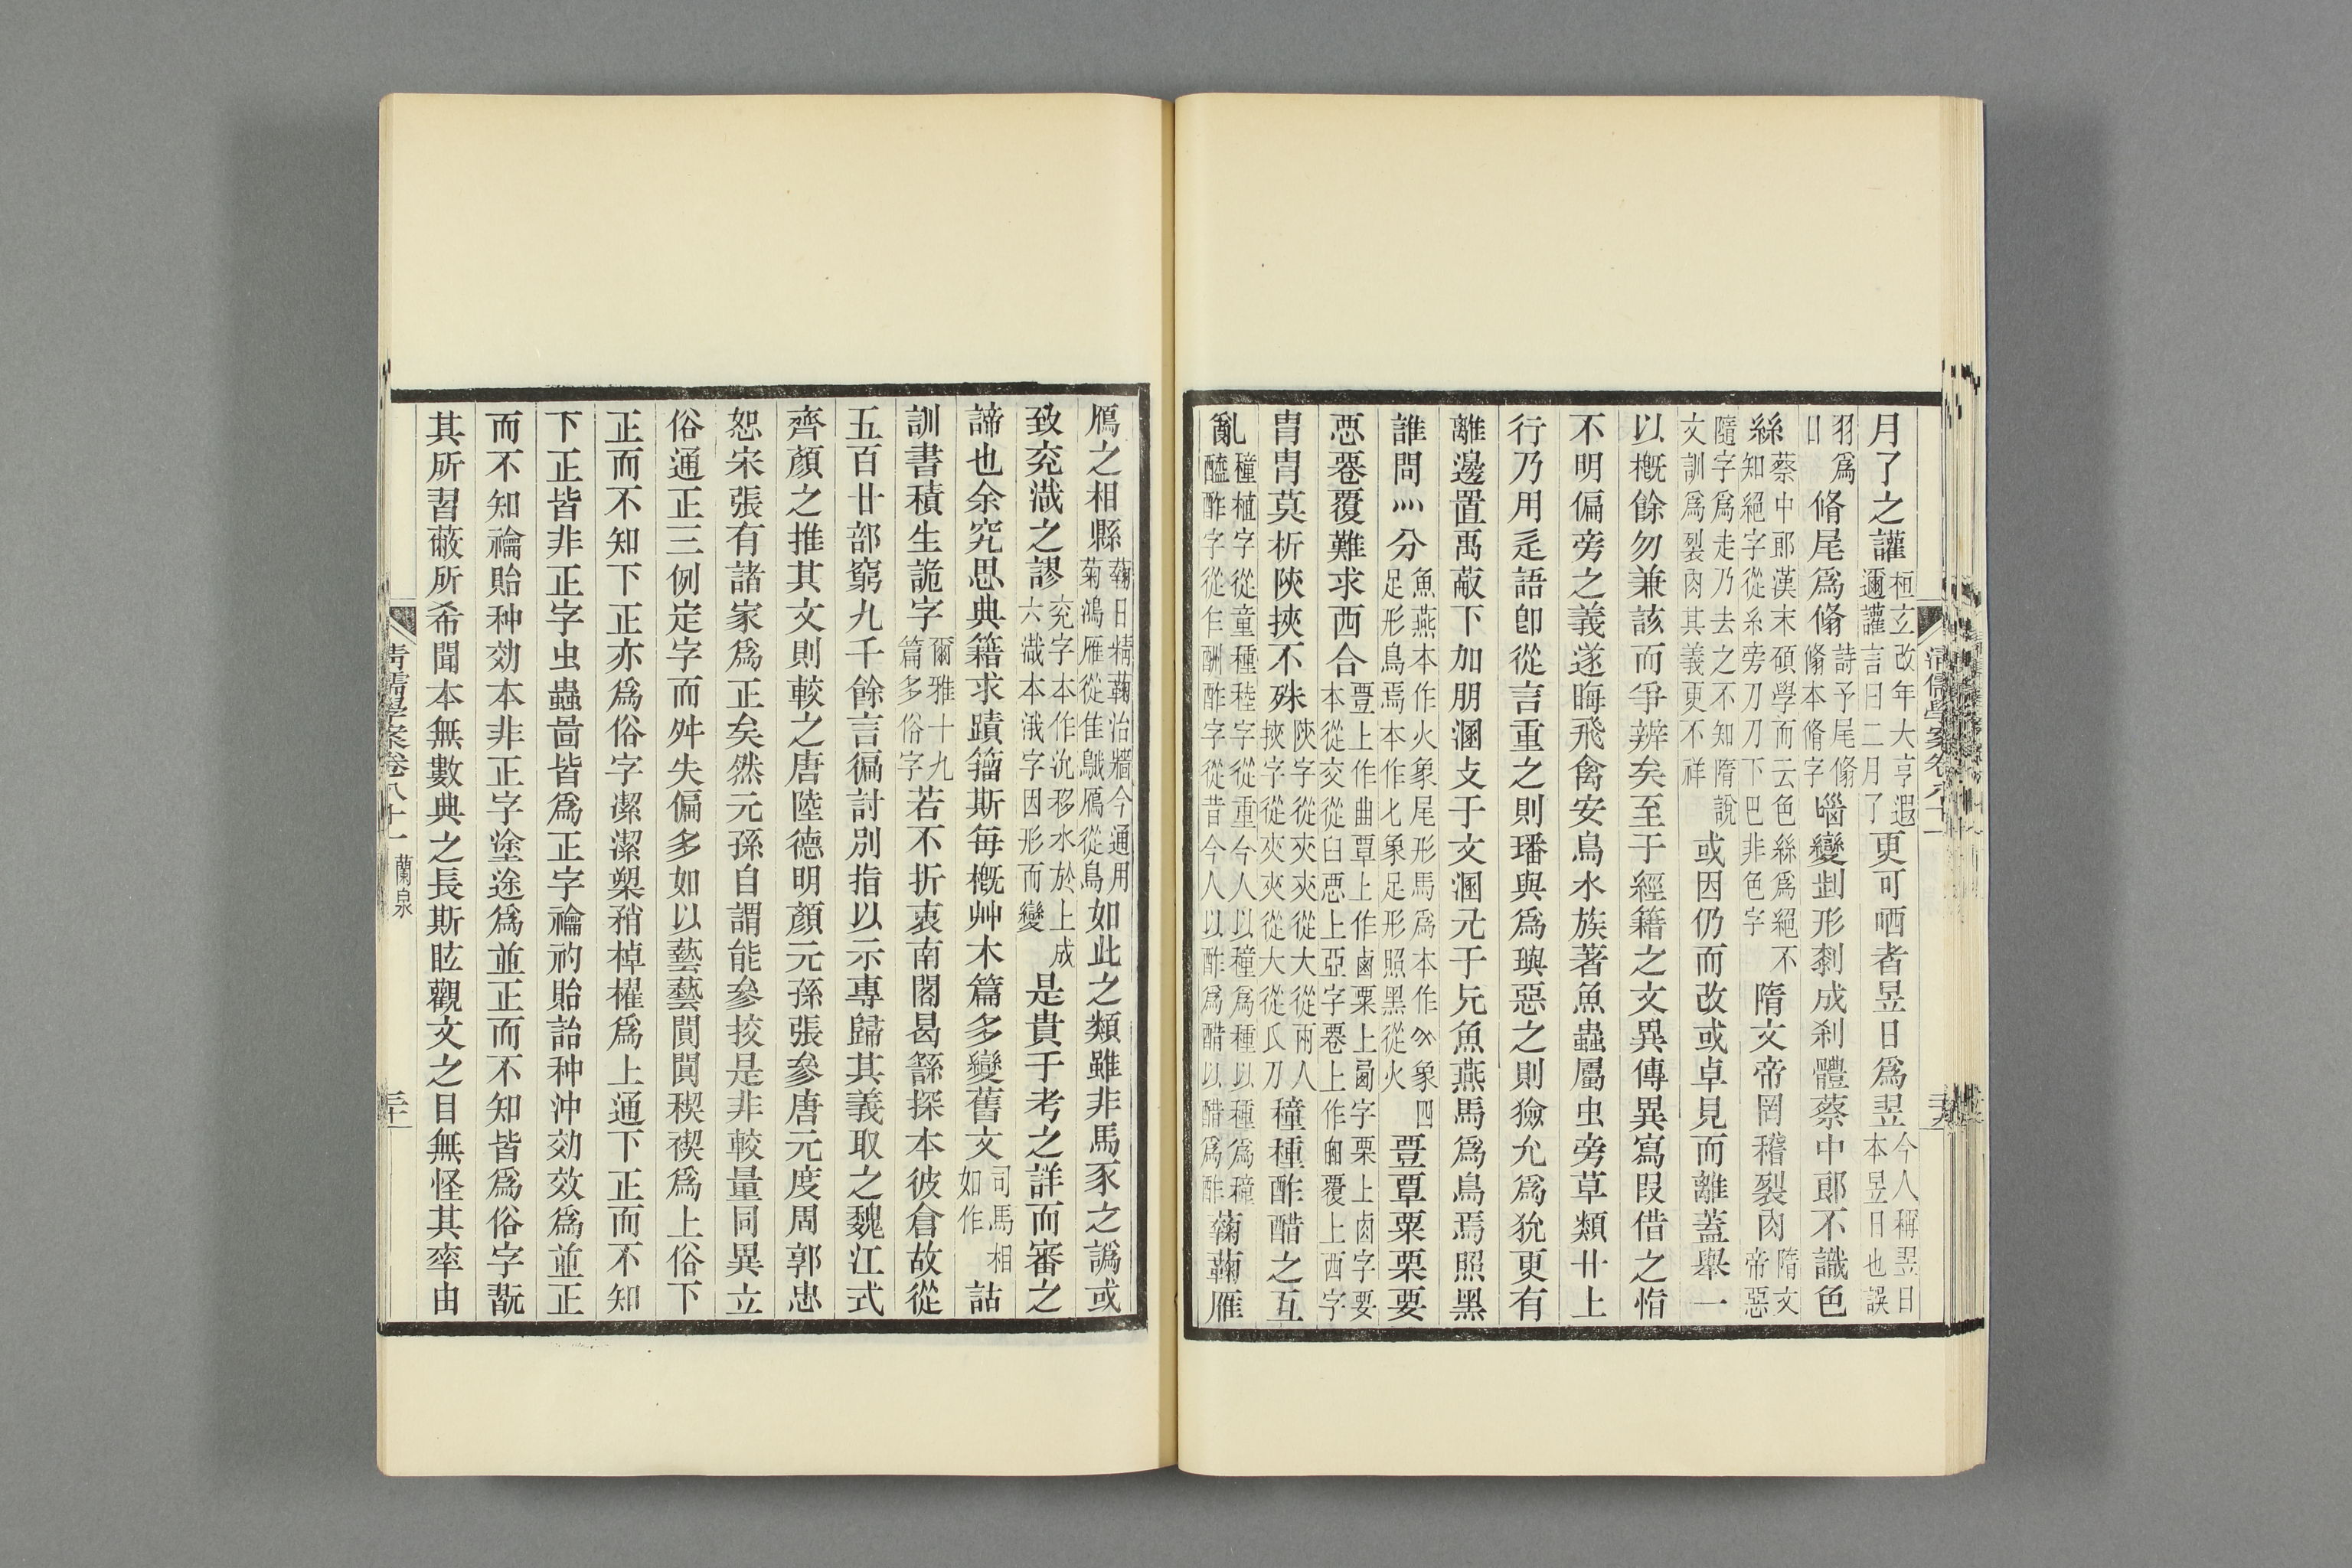 月了之讙桓玄改年大亨遐邇讙言曰二月了更可哂者昱日爲翌今人稱翌日本昱日也誤
羽爲日脩尾爲翛詩予尾翛翛本脩字𡿺變剉形剩成剎體蔡中郎不識色
絲蔡中郎漢末碩學而云色絲爲絕不知絕字從糸旁刀刀下巴非色字隋文帝罔稽裂肉隋文帝惡
隨字爲走乃去之不知隋說文訓爲裂肉其義更不祥或因仍而改或卓見而離蓋舉一
以槪餘勿兼該而爭辨矣至于經籍之文異傳異寫叚借之恉
不明偏旁之義遂晦飛禽安鳥水族著魚蟲屬虫旁草類卄上
行乃用辵語卽從言重之則璠與爲璵惡之則獫允爲狁更有
離邊置禹敲下加朋溷攴于文溷元于兂魚燕馬爲鳥焉照黑
誰問灬分魚燕本作火象尾形馬爲本作象四足形鳥焉本作匕象足形照黑從火豈覃粟栗要
惡罨覆難求西合豈上作曲覃上作鹵粟上字栗上卤字要本從交從臼惡上亞字罨上作覆上西字
冑冑莫析陝挾不殊陝字從夾夾從大從兩人挾字從夾夾從大從氏刀穜種酢醋之互
亂穜植字從童種稑字從重今人以穜爲種以種爲穜醯酢字從乍酬酢字從昔今人以酢爲醋以醋爲酢蘜蘜雁
鴈之相縣蘜日精蘜治牆今通用菊鴻雁從隹䳘鴈從鳥如此之類雖非馬豕之譌或
致兖濈之謬兖字本作沇移水於上成六濈本濈字因形而變是貴于考之詳而審之
諦也余究思典籍求蹟籀斯每槪艸木篇多變舊文司馬相如作詁
訓書積生詭字爾雅十九篇多俗字若不折衷南閣曷繇探本彼倉故從
五百廿部窮九千餘言徧討別指以示專歸其義取之魏江式
齊顏之推其文則較之唐陸德明顏元孫張參唐元度周郭忠
恕宋張有諸家爲正矣然元孫自謂能參挍是非較量同異立
俗通正三例定字而舛失偏多如以藝藝閴闃稧禊爲上俗下
正而不知下正亦爲俗字潔潔槊矟棹櫂爲上通下正而不知
下正皆非正字虫蟲啚皆爲正字禴礿貽詒种沖効效爲並正
而不知禴貽种効本非正字塗途爲並正而不知皆爲俗字翫
其所習蔽所希聞本無數典之長斯眩觀文之目無怪其率由
清儒學案卷八十一 蘭泉